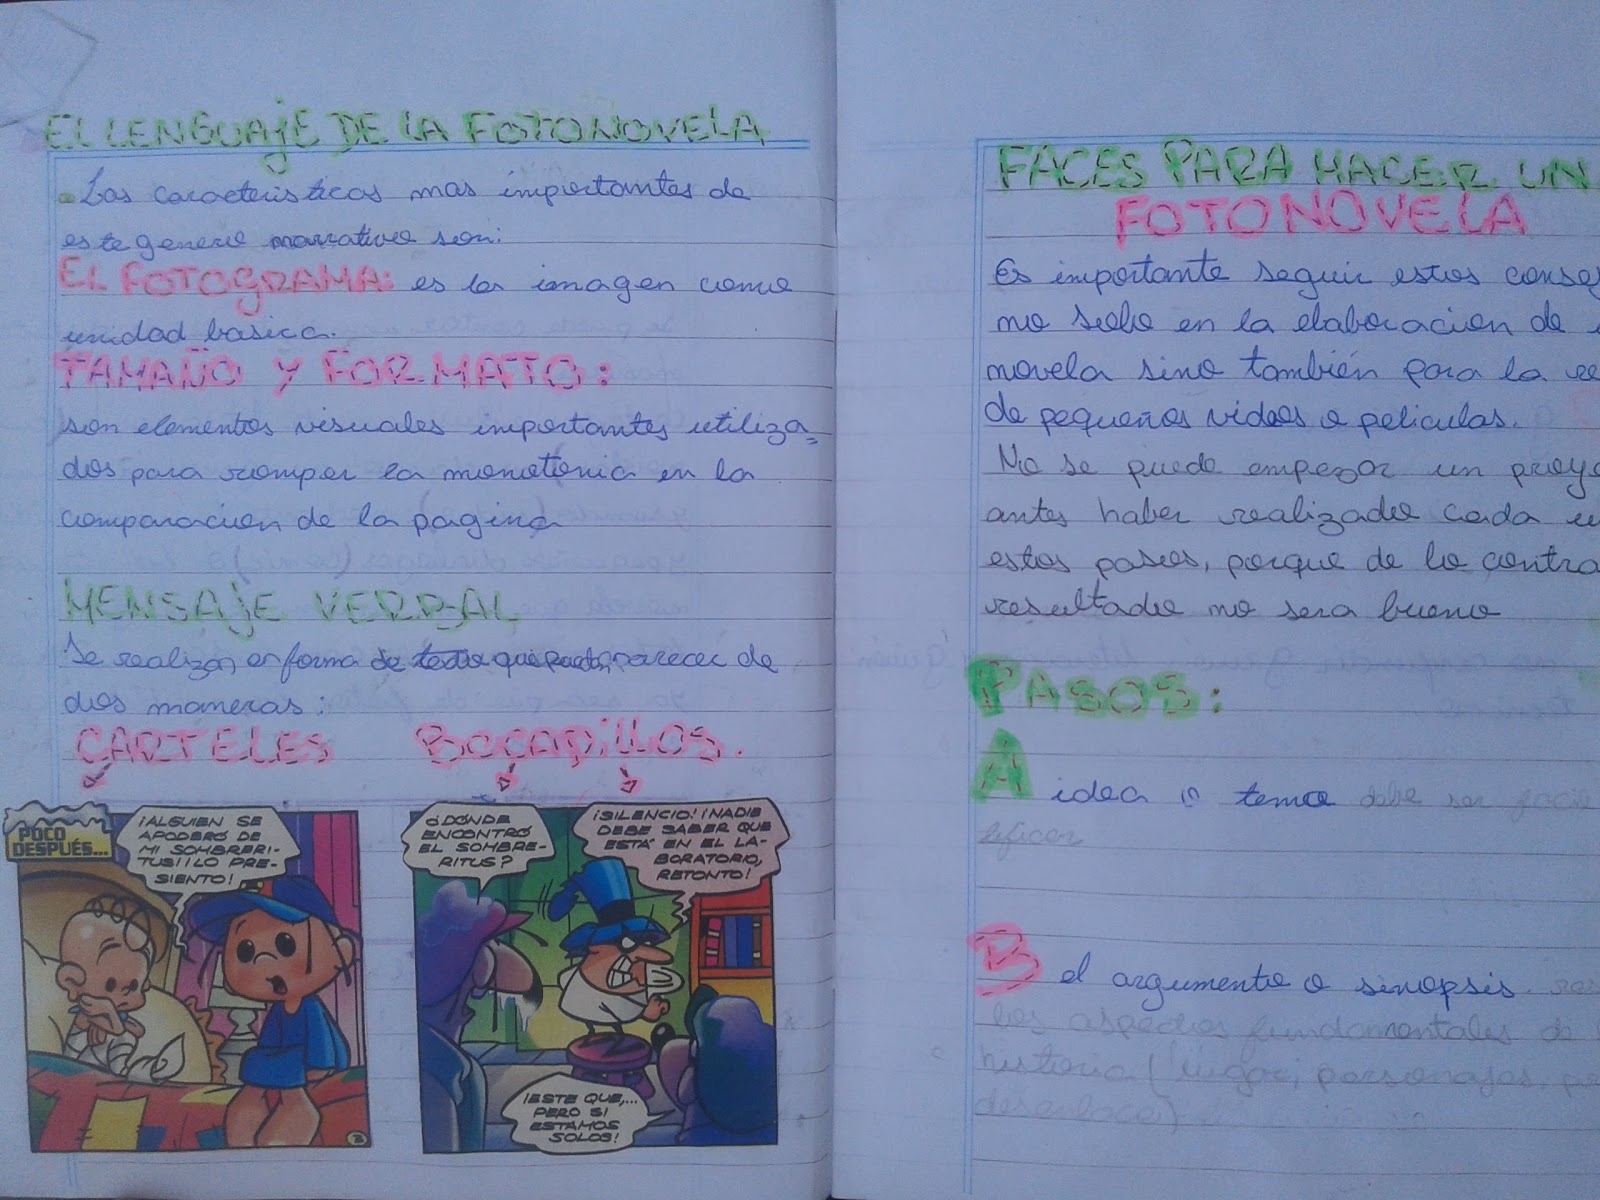 EL LENGUAJE DE LA FOTONOVELA
Las caracteristicas mas importantes de
este genero narrativo son:
EL FOTOGRAMA: es la imagen como
unidad basica.
TAMAÑO Y FORMATO:
son elementos visuales importantes utiliza=
dos para romper la monotonia en la
comparacion de la pagina
MENSAJE VERBAL
Se realizan en forma de texto que puede parecer de
dos maneras:
CARTELES BOCADILLOS.
POCO
DESPUÉS...
¡ALGUIEN SE
APODERÓ DE
MI SOMBRERI-
TUS! ¡LO PRE-
SIENTO!
¿DÓNDE
ENCONTRÓ
EL SOMBRE-
RITUS?
¡SILENCIO! ¡NADIE
DEBE SABER QUE
ESTÁ EN EL LA-
BORATORIO,
RETONTO!
¡ESTE QUE,...
PERO SI
ESTAMOS
SOLOS!
FACES PARA HACER UN
FOTONOVELA
Es importante seguir estos conse
no solo en la elaboracion de
novela sino también para la re
de pequeños videos o peliculas.
No se puede empezar un proye
antes haber realizado cada u
estos pasos, porque de lo contra
resultado no sera bueno
PASOS:
A idea o tema debe ser facil
B el argumento o sinopsis.
los aspectos fundamentales de
historia (lugar, personajes,
desenlace)